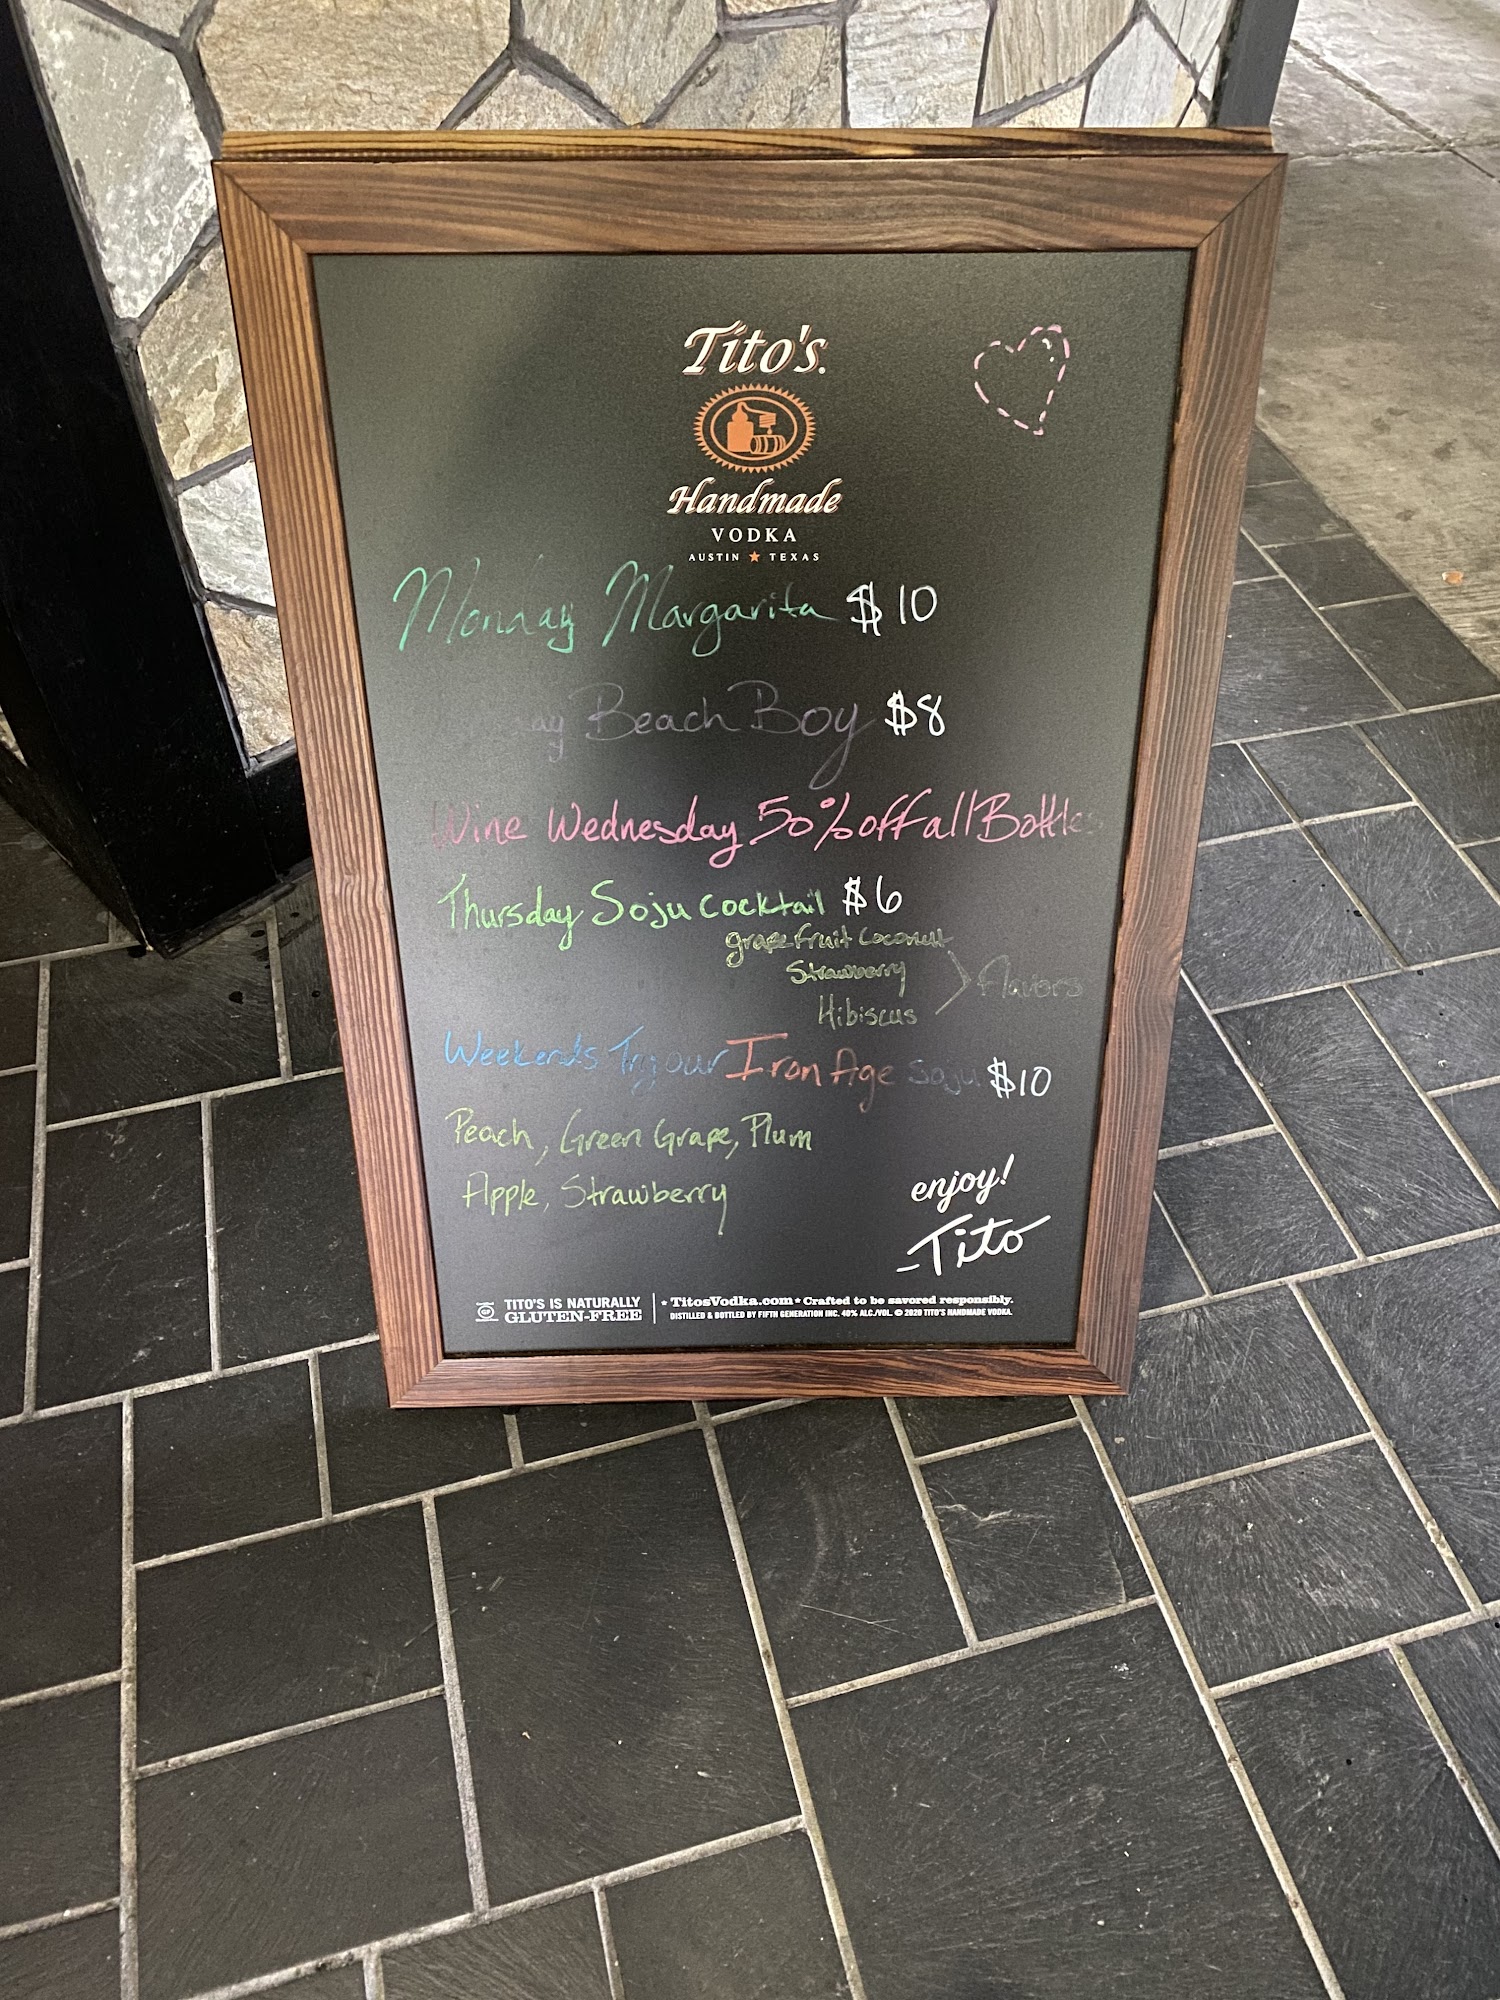 Tito's.
Handmade
VODKA
AUSTIN ★ TEXAS
Monday Margarita $10
Beach Boy $8
Wine Wednesday 50% off all Bottles
Thursday Soju Cocktail $6
grapefruit Coconutt
Strawberry
Hibiscus
Flavors
Weekends Try our Iron Age Soju $10
Peach, Green Grape, Plum
Apple, Strawberry
enjoy!
-Tito
GF
TITO'S IS NATURALLY
GLUTEN-FREE
* TitosVodka.com * Crafted to be savored responsibly.
DISTILLED & BOTTLED BY FIFTH GENERATION INC. 40% ALC./VOL. © 2020 TITO'S HANDMADE VODKA.